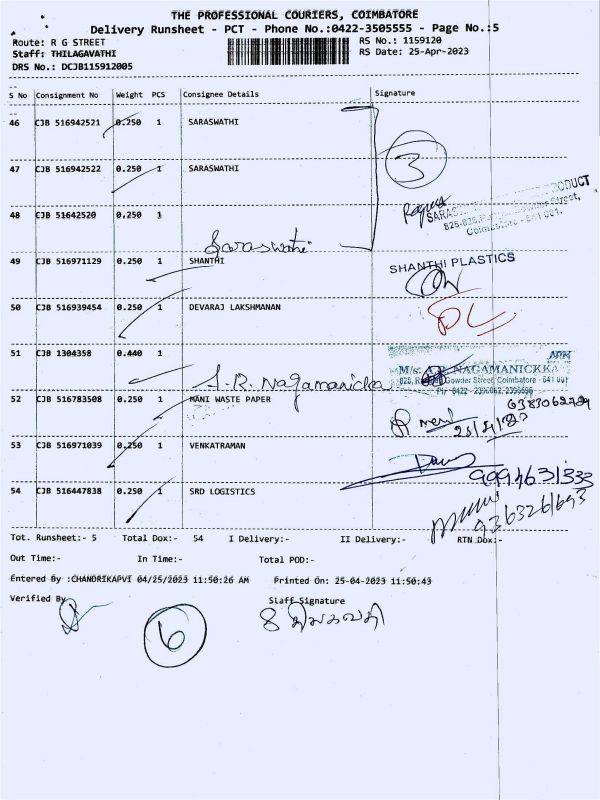 THE PROFESSIONAL COURIERS, COIMBATORE
Delivery Runsheet - PCT - Phone No.:0422-3505555 - Page No.:5
Route: R G STREET RS No.: 1159120
Staff: THILAGAVATHI RS Date: 25-Apr-2023
DRS No.: DCJB115912005
S No Consignment No Weight PCS Consignee Details Signature
46 CJB 516942521 0.250 1 SARASWATHI
3
47 CJB 516942522 0.250 1 SARASWATHI
48 CJB 51642520 0.250 1
Saraswathi
49 CJB 516971129 0.250 1 SHANTHI
SHANTHI PLASTICS
50 CJB 516939454 0.250 1 DEVARAJ LAKSHMANAN
51 CJB 1304358 0.440 1
M/s. A.R. NAGAMANICKKA
A.R. Nagamanicka
52 CJB 516783508 0.250 1 MANI WASTE PAPER
53 CJB 516971039 0.250 1 VENKATRAMAN
9994631333
54 CJB 516447838 0.250 1 SRD LOGISTICS
9363261693
Tot. Runsheet:- 5 Total Dox:- 54 I Delivery:- II Delivery:- RTN Dox:-
Out Time:- In Time:- Total POD:-
Entered By :CHANDRIKAPVI 04/25/2023 11:50:26 AM Printed On: 25-04-2023 11:50:43
Verified By Staff Signature
6 திலகவதி